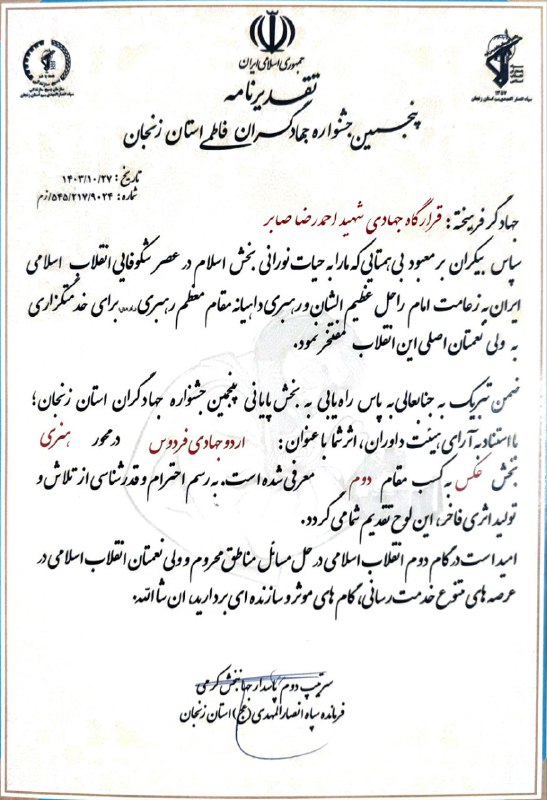 جمهوری اسلامی ایران
تقدیرنامه
پنجمین جشنواره جهادگران فاطمی استان زنجان
تاریخ: ۱۴۰۳/۱۰/۲۷
شماره: ۵۴۵/۲۱۷/۹۰۲۴/زم
جهادگر فرهیخته: قرارگاه جهادی شهید احمدرضا صابر
سپاس بیکران بر معبود بی همتایی که ما را به حیات نورانی بخش اسلام در عصر شکوفایی انقلاب اسلامی
ایران به زعامت امام راحل عظیم الشان و رهبری داهیانه مقام معظم رهبری برای خدمتگزاری
به ولی نعمتان اصلی این انقلاب مفتخر نمود.
ضمن تبریک به جنابعالی به پاس راه یابی به بخش پایانی پنجمین جشنواره جهادگران استان زنجان؛
با استناد به آرای هیئت داوران، اثر شما با عنوان: اردو جهادی فردوس در محور هنری
بخش عکس به کسب مقام دوم معرفی شده است. به رسم احترام و قدرشناسی از تلاش و
تولید اثری فاخر، این لوح تقدیم شما می گردد.
امید است در گام دوم انقلاب اسلامی در حل مسائل مناطق محروم و ولی نعمتان انقلاب اسلامی در
عرصه های متنوع خدمت رسانی، گام های موثر و سازنده ای بردارید، ان شاالله.
سرتیپ دوم پاسدار جهانبخش کرمی
فرمانده سپاه انصارالمهدی (عج) استان زنجان